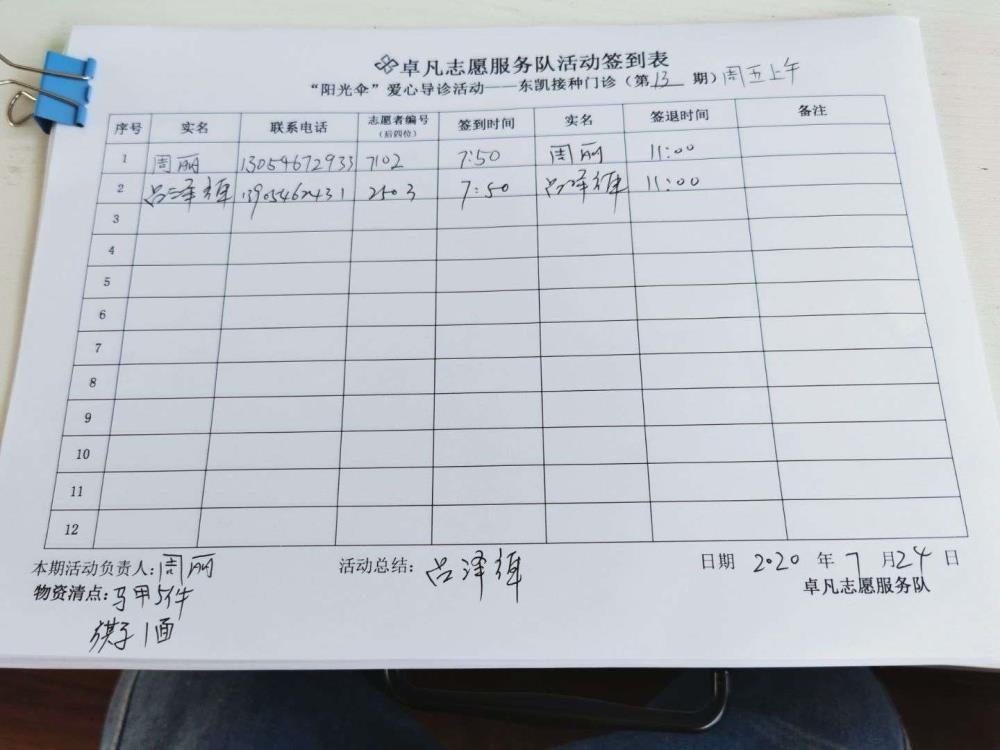 卓凡志愿服务队活动签到表
“阳光伞”爱心导诊活动——东凯接种门诊（第 13 期）周五上午
序号 实名 联系电话 志愿者编号（后四位） 签到时间 实名 签退时间 备注
1 周丽 13054672933 7102 7:50 周丽 11:00
2 吕泽 2503 7:50 吕泽 11:00
3
4
5
6
7
8
9
10
11
12
本期活动负责人：周丽 活动总结：吕泽 日期 2020 年 7 月 24 日
物资清点：马甲5件 卓凡志愿服务队
旗子1面